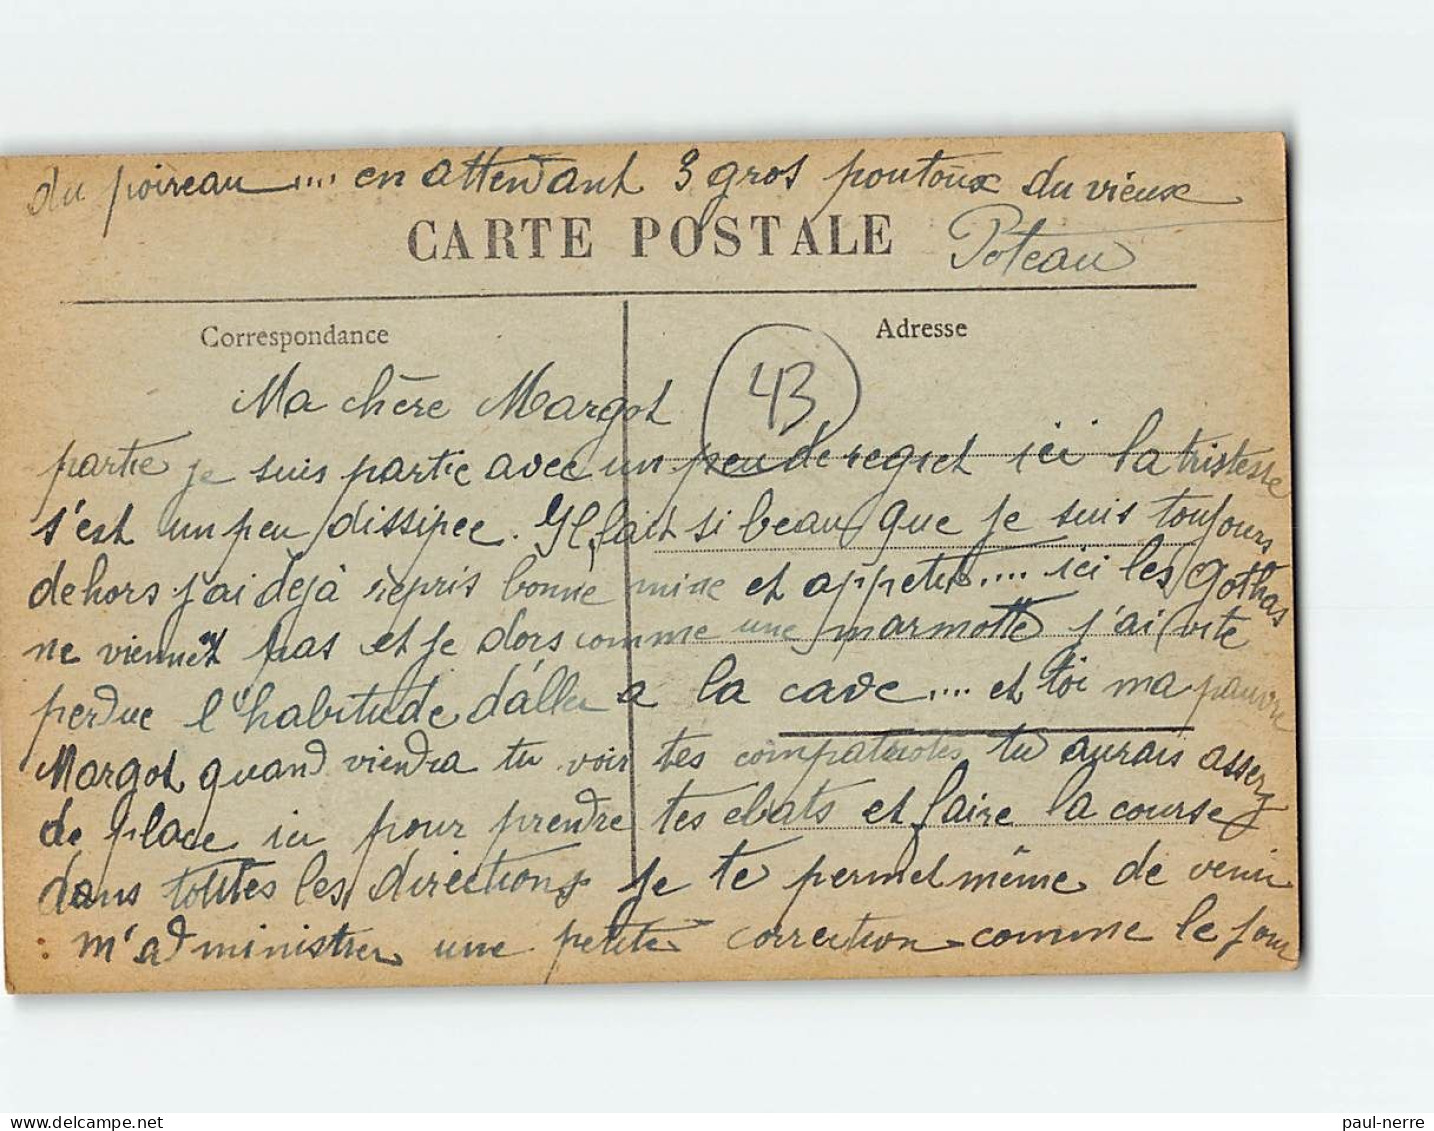 du poireau .... en attendant 3 gros poutoux du vieux
Poteau
CARTE POSTALE
Correspondance
Adresse
43
Ma chère Margot
partie je suis partie avec un peu de regret ici la tristesse
s'est un peu dissipée. Il fait si beau que je suis toujours
dehors j'ai dejà repris bonne mine et appetit.... ici les gothas
ne viennet pas et je dors comme une marmotte j'ai vite
perdue l'habitude d'aller a la cave .... et toi ma pauvre
Margot quand viendra tu voir tes compatriotes tu aurais assez
de place ici pour prendre tes ebats et faire la course
dans toutes les directions je te permet même de venir
m'administrer une petite correction comme le jour
paul-nerre